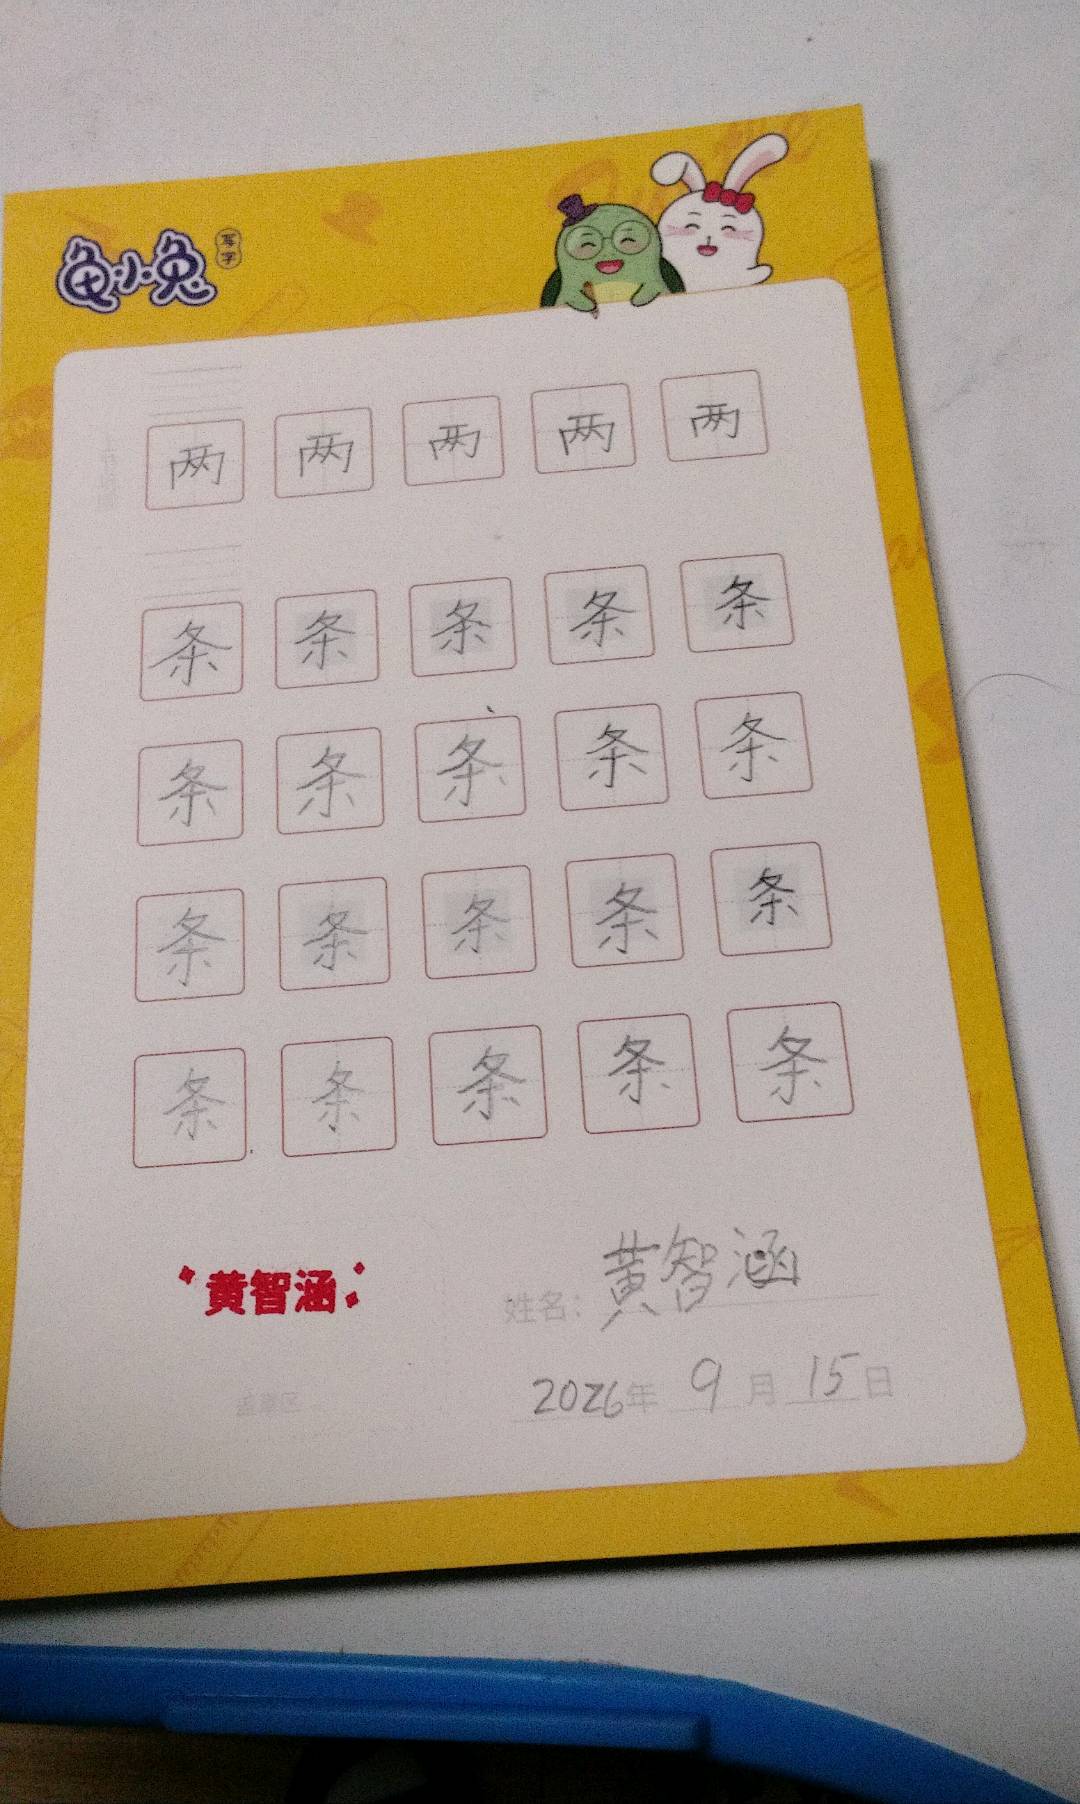 龟小兔
写字
两 两 两 两 两
条 条 条 条 条
条 条 条 条 条
条 条 条 条 条
条 条 条 条 条
黄智涵
姓名：黄智涵
2026年 9月 15日
盖章区